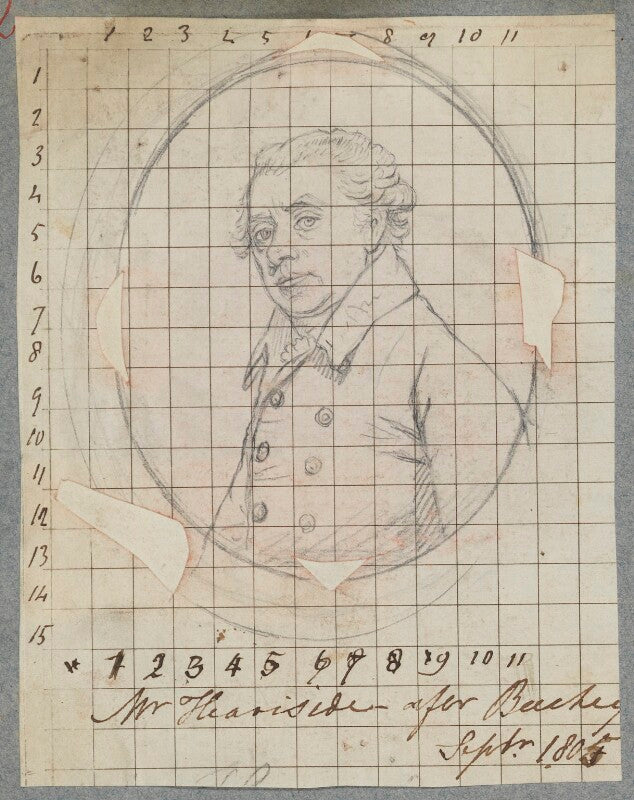 1 2 3 4 5 8 9 10 11
1
2
3
4
5
6
7
8
9
10
11
12
13
14
15
* 1 2 3 4 5 6 7 8 9 10 11
Mr Heaviside after
Septr. 1805